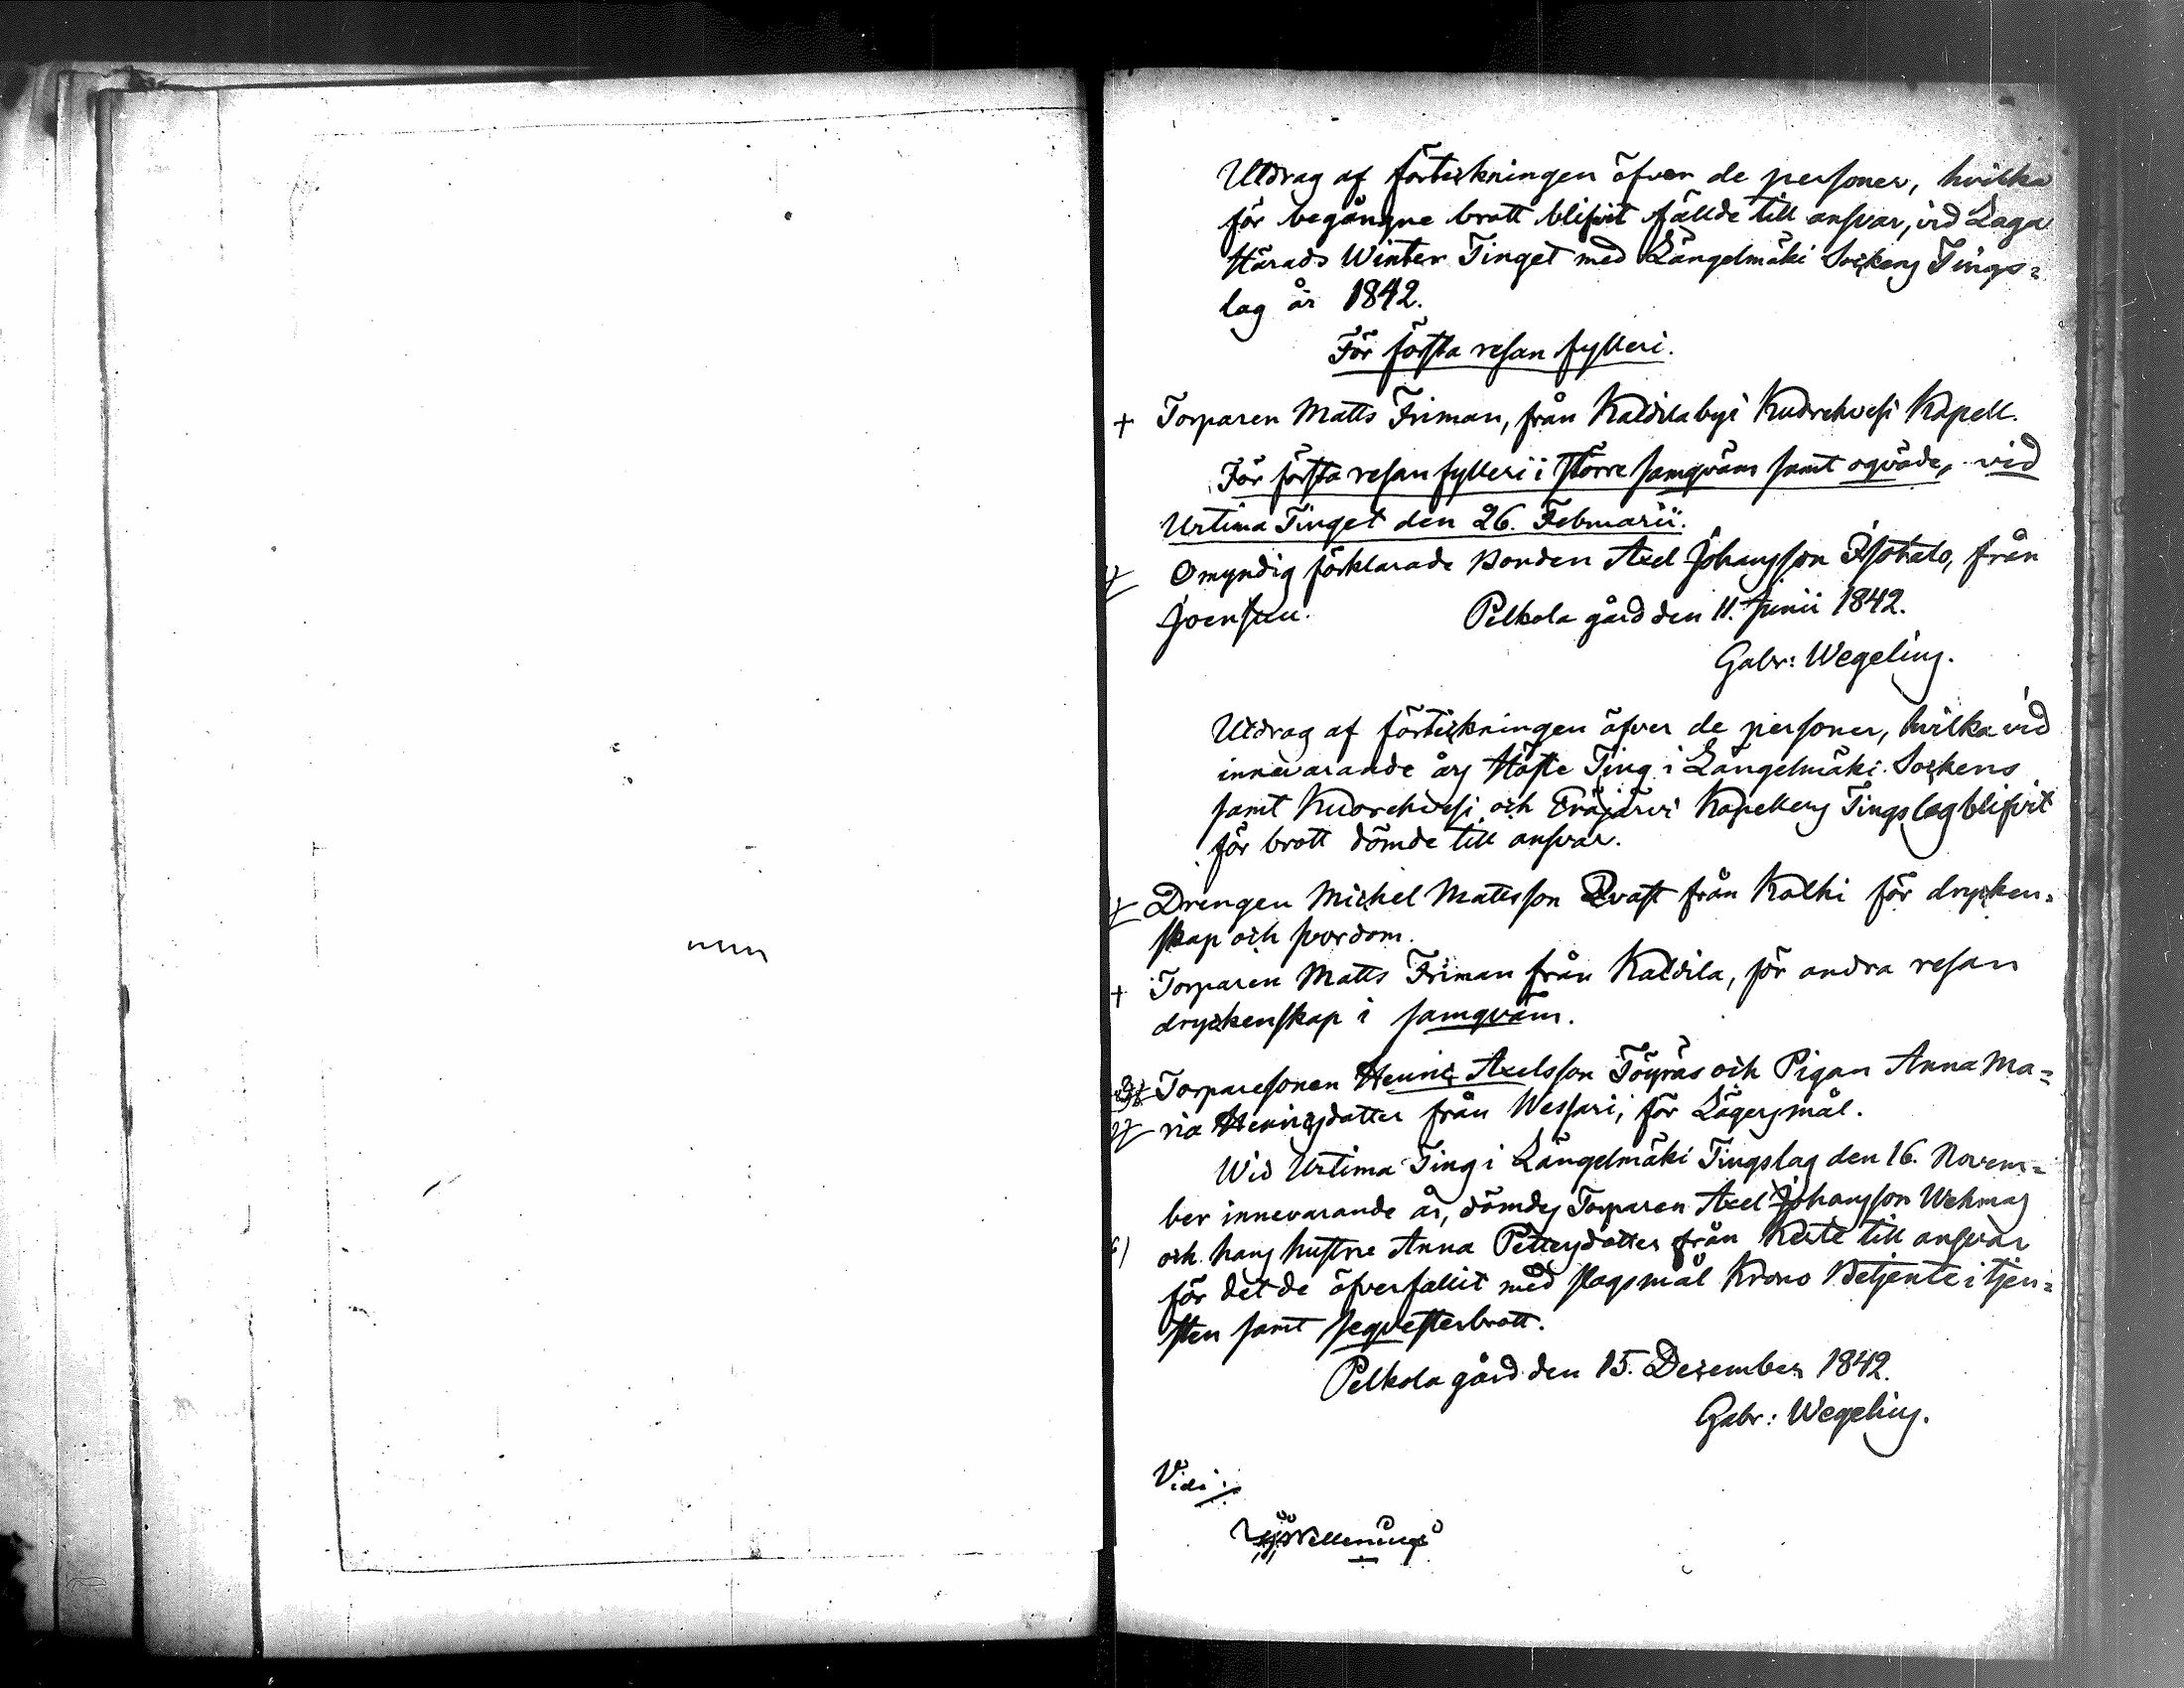 Utdrag af förtekningen öfver de personer, hvilka
för begångne brott blifvit fällde till ansvar, vid Laga
Härads Winter Tinget med Längelmäki Sockens Tings=
lag år 1842.
För första resan fylleri.
+ Torparen Matts Friman, från Kaldila by i Kuorehvesi Kapell.
För första resan fylleri i större samqväm samt oqväde, vid
Urtima Tinget den 26. Februarii.
Omyndig förklarade Bonden Axel Johansson Isotalo, från
Joensuu. Pelkola gård den 11. Junii 1842.
Gabr: Wegelius.
Utdrag af förtekningen öfver de personer, hvilka vid
innevarande års Höste Ting i Längelmäki Sockens
samt Kuorehvesi och Eräjärvi Kapellens Tingslag blifvit
för brott dömde till ansvar.
Drengen Michel Mattsson Qvast från Kalhi för drycken=
skap och svordom.
+ Torparen Matts Friman från Kaldila, för andra resan
dryckenskap i samqväm.
Torparesonen Henric Axelsson Töyräs och Pigan Anna Ma=
ria Henricsdotter från Wessari, för Lägersmål.
Wid Urtima Ting i Längelmäki Tingslag den 16. Novem=
ber innevarande år, dömdes Torparen Axel Johansson Wehmas
och hans hustru Anna Pettersdotter från till ansvar
för det de öfverfallit med slagsmål Krono Betjente i tjen=
sten samt seqvesterbrott.
Pelkola gård den 15. December 1842.
Gabr: Wegelius.
Vidi